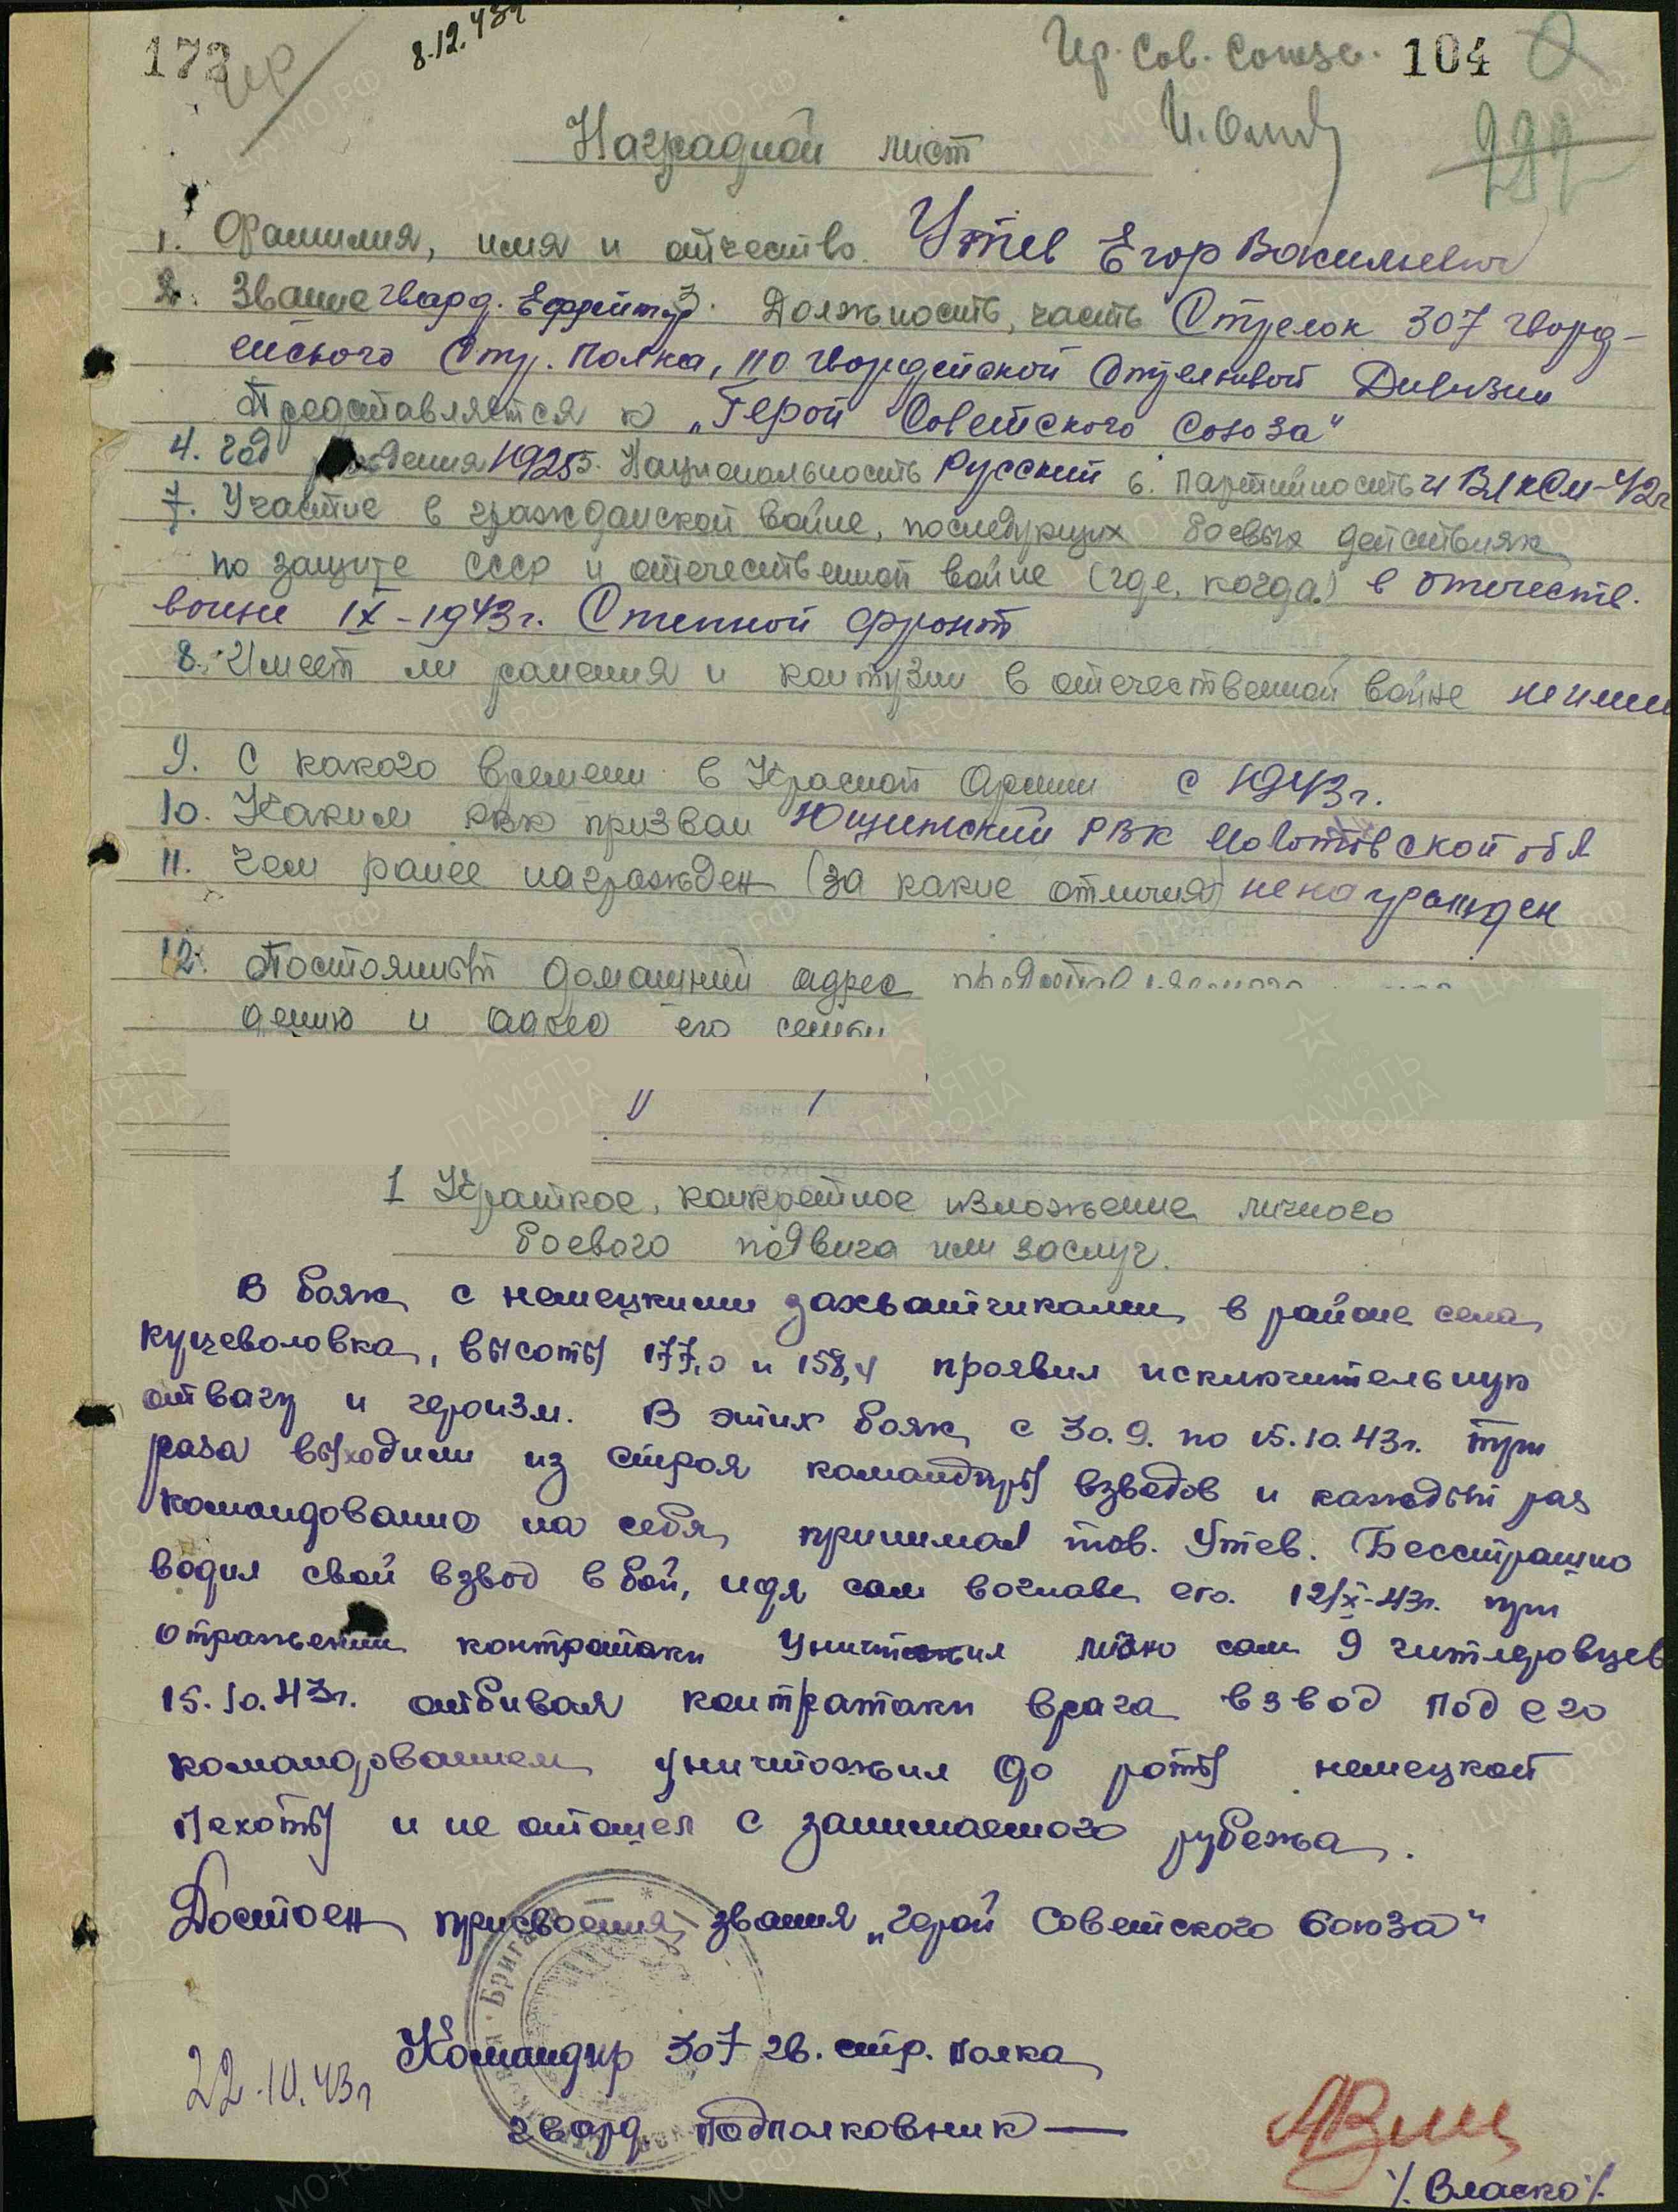 173
8.12.43г
Гер. Сов. Союза. 104
Наградной лист
1. Фамилия, имя и отчество. Утев Егор Васильевич
2. Звание Гвард. Ефрейтор 3. Должность, часть Стрелок 307 гвард-
ейского Стр. Полка, 110 гвардейской Стрелковой Дивизии
Представляется к „Герой Советского Союза"
4. год рождения 1925 5. Национальность Русский 6. Партийность ч ВЛКСМ-42г
7. Участие в гражданской войне, последующих боевых действиях
по защите СССР и отечественной войне (где, когда) в Отечеств.
войне IX-1943г. Степной Фронт
8. Имеет ли ранения и контузии в отечественной войне не имеет
9. С какого времени в Красной Армии с 1943г.
10. Каким РВК призван РВК Молотовской обл
11. Чем ранее награжден (за какие отличия) не награжден
12. Постоянный домашний адрес представляемого
дению и адрес его семьи
I Краткое, конкретное изложение личного
боевого подвига или заслуг.
В боях с немецкими захватчиками в районе села
Куцеволовка, высоты 177,0 и 158,4 проявил исключительную
отвагу и героизм. В этих боях с 30.9. по 15.10.43г. три
раза выходили из строя командиры взводов и каждый раз
командование на себя принимал тов. Утев. Бесстрашно
водил свой взвод в бой, идя сам вочлаве его. 12/X-43г. при
отражении контратаки уничтожил лично сам 9 гитлеровцев
15.10.43г. отбивая контратаки врага взвод под его
командованием уничтожил до роты немецкой
пехоты и не отошел с занимаемого рубежа.
Достоен присвоения звания „Герой Советского Союза"
Командир 307 гв. стр. полка
22.10.43г
гвард. подполковник —
/. Власко /.